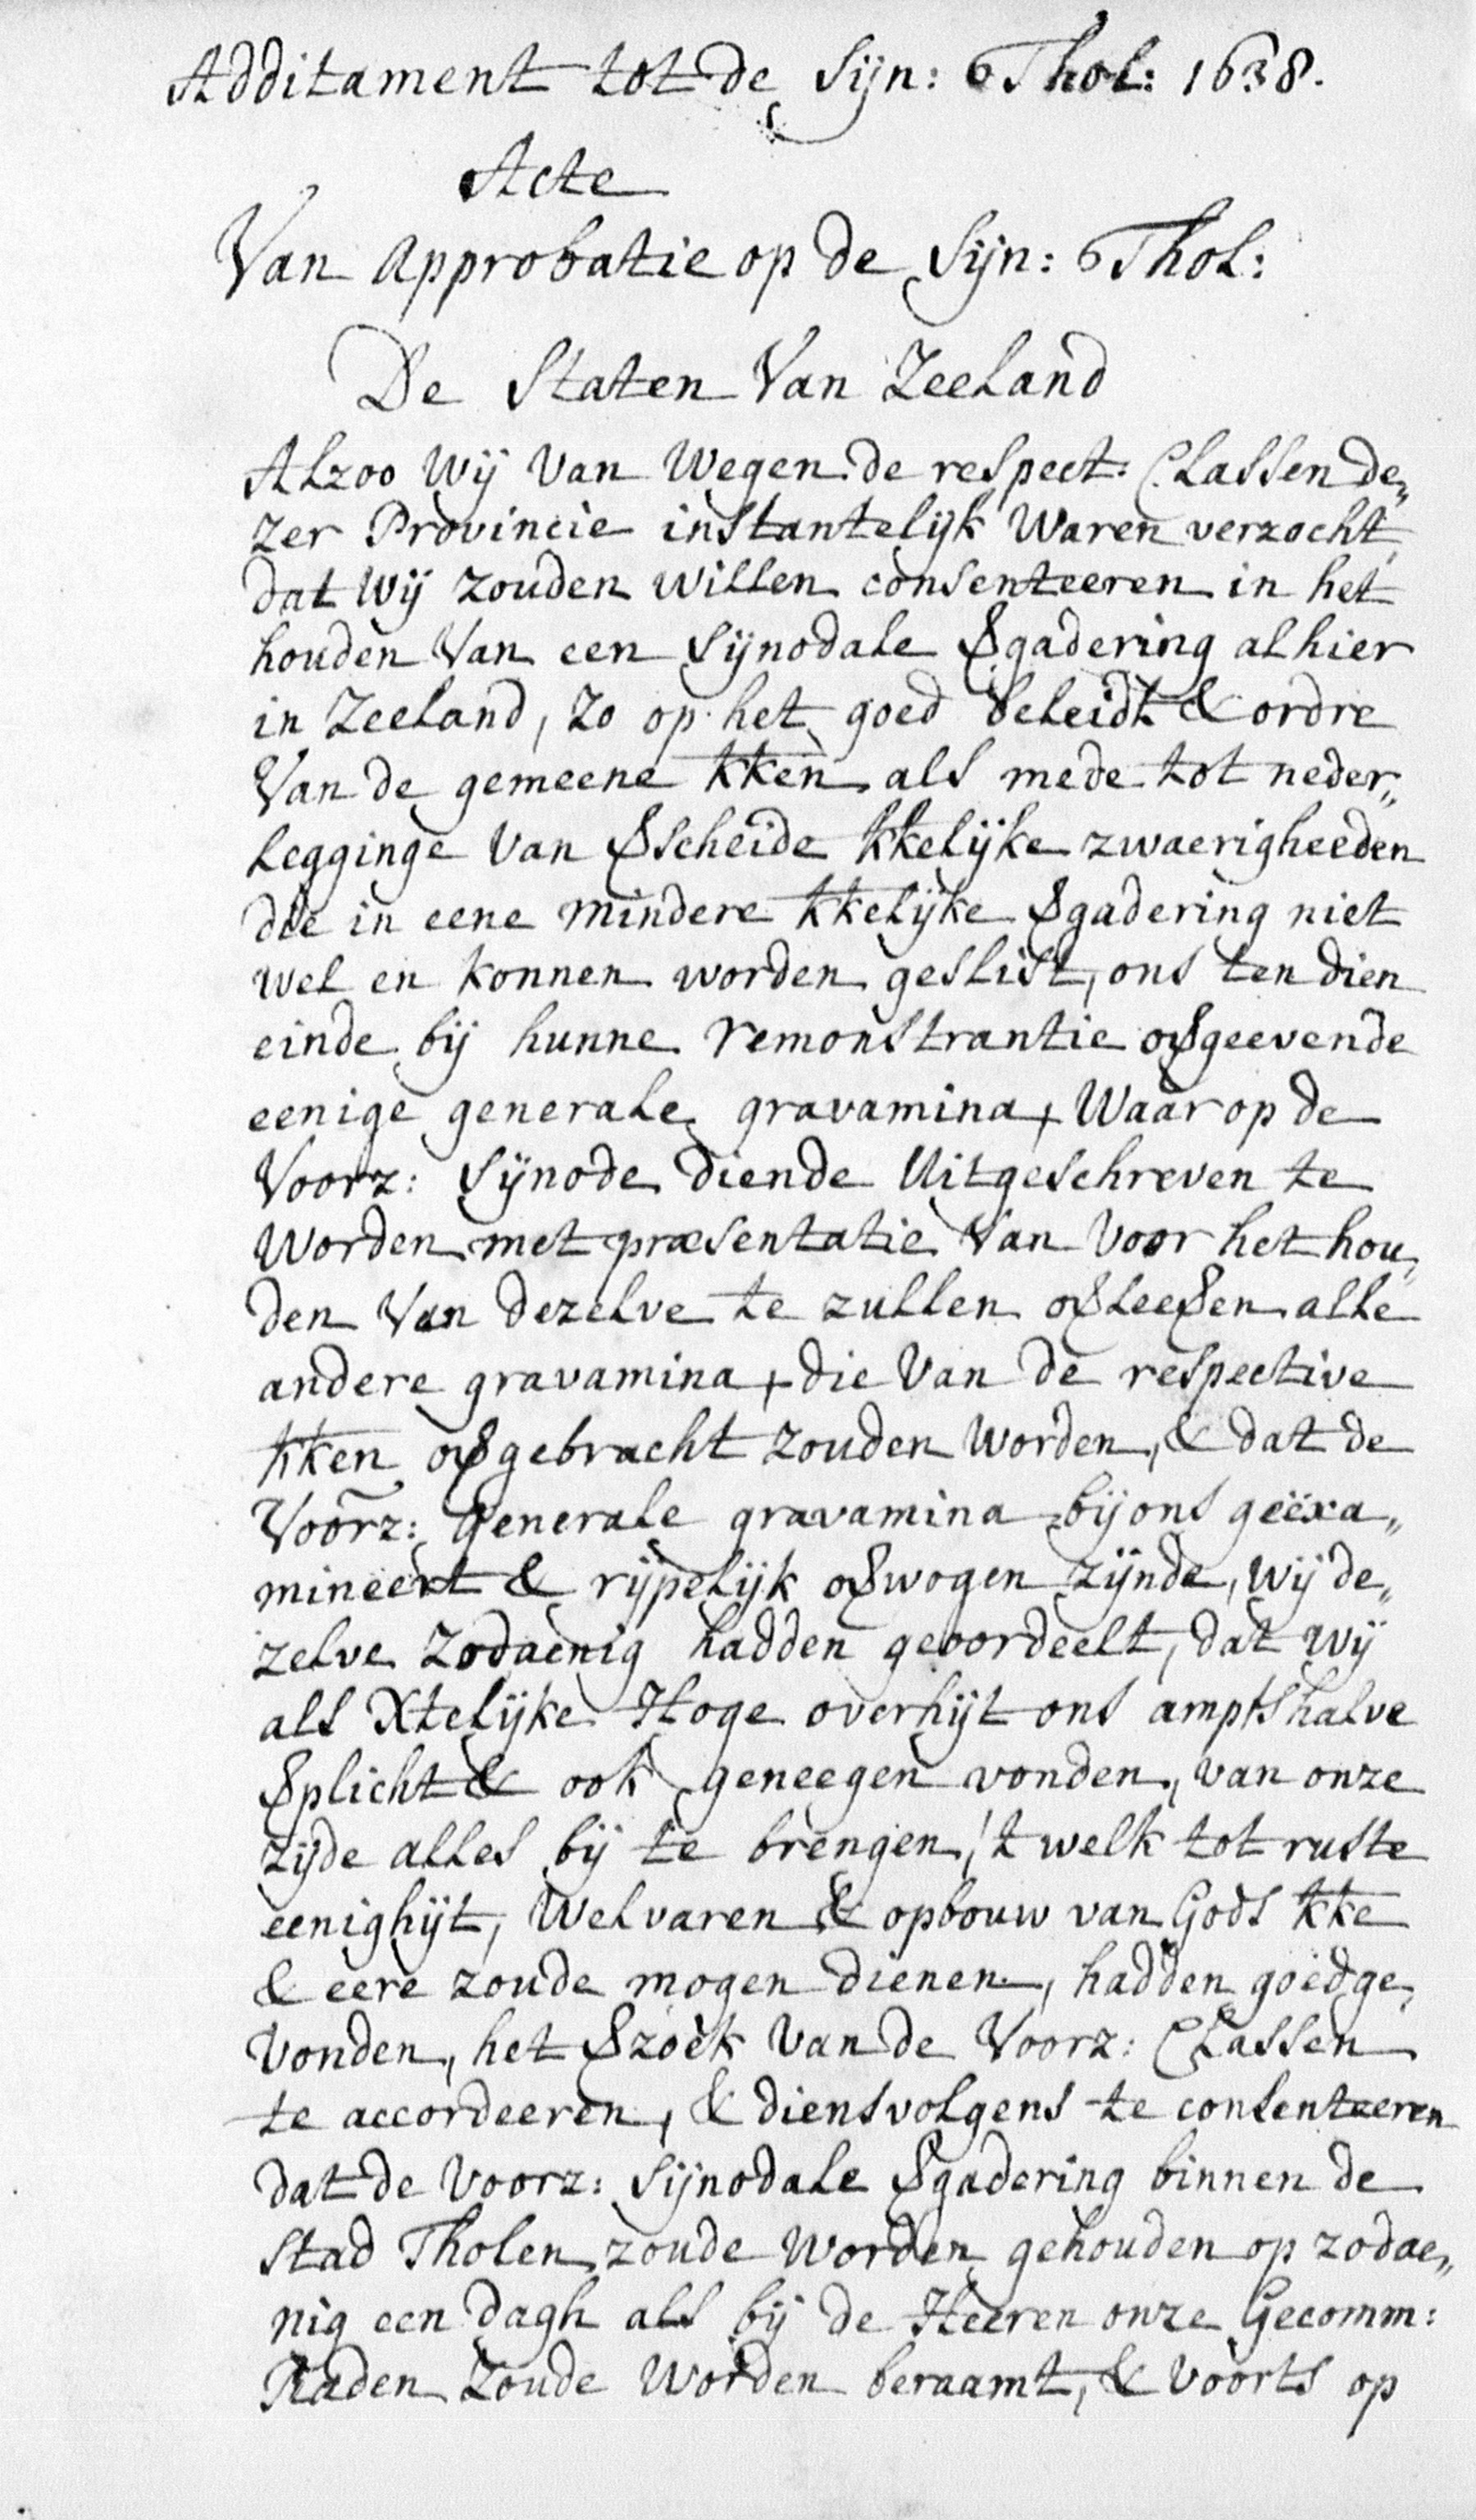 Additament tot de Sijn: Thol: 1638.
Acte
Van Approbatie op de Sijn: Thol:
De Staten Van Zeeland
Alzoo Wij Van Wegen de respect: Classen de„
zer Provincie instantelijk Waren verzocht
dat Wij zouden willen consenteeren in het
houden Van een Sijnodale ꝟgadering alhier
in Zeeland, zo op het goed beleidt & ordre
Van de gemeene kken als mede tot neder„
legginge Van ꝟscheide kkelijke zwaerigheeden
die in eene mindere kkelijke ꝟgadering niet
wel en konnen worden geslist, ons ten dien
einde bij hunne remonstrantie oꝟgeevende
eenige generale gravamina, Waar op de
Voorz: Sijnode diende Uitgeschreven te
Worden met præsentatie Van Voor het hou„
den Van dezelve te zullen oꝟleeꝟen alle
andere gravamina, die Van de respective
kken oꝟgebracht zouden Worden, & dat de
Voorz: Generale gravamina bij ons geëxa„
mineert & rijpelijk oꝟwogen zijnde, wij de„
zelve zodaenig hadden geoordeelt, dat wij
als Xtelijke Hoge overhijt ons amptshalve
ꝟplicht & ook geneegen vonden, van onze
zijde alles bij te brengen, 't welk tot ruste
eenighijt, Welvaren & opbouw van Gods kke
& eere zoude mogen dienen, hadden goedge„
Vonden, het ꝟzoek Van de Voorz: Classen
te accordeeren, & diensvolgens te consenteeren
dat de Voorz: Sijnodale ꝟgadering binnen de
Stad Tholen zoude Worden gehouden op zodae„
nig een dagh als bij de Heeren onze Gecomm:
Raden Zoude Worden beraamt, & Voorts op